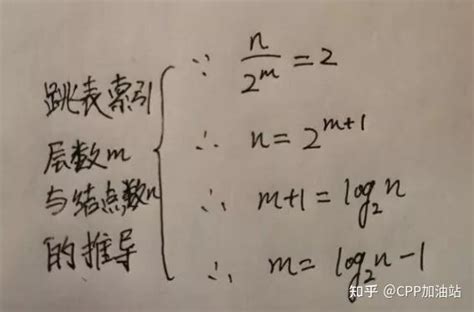 跳表索引
层数m
与结点数n
的推导
∵ n/2^m = 2
∴ n = 2^{m+1}
∴ m+1 = log₂n
∴ m = log₂n - 1
知乎 @CPP加油站